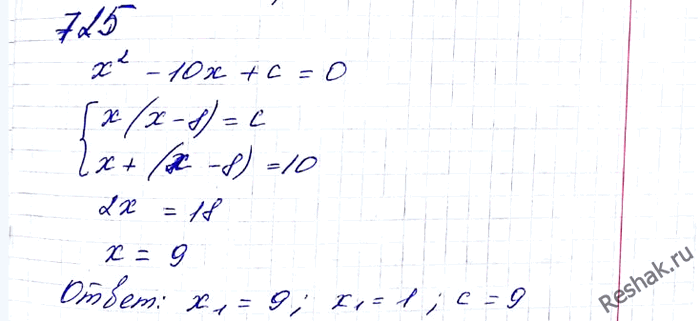 725
x² - 10x + c = 0
{ x(x-8) = c
x + (x - 8) = 10
2x = 18
x = 9
Ответ: x₁ = 9; x₁ = 1; c = 9
Reshak.ru